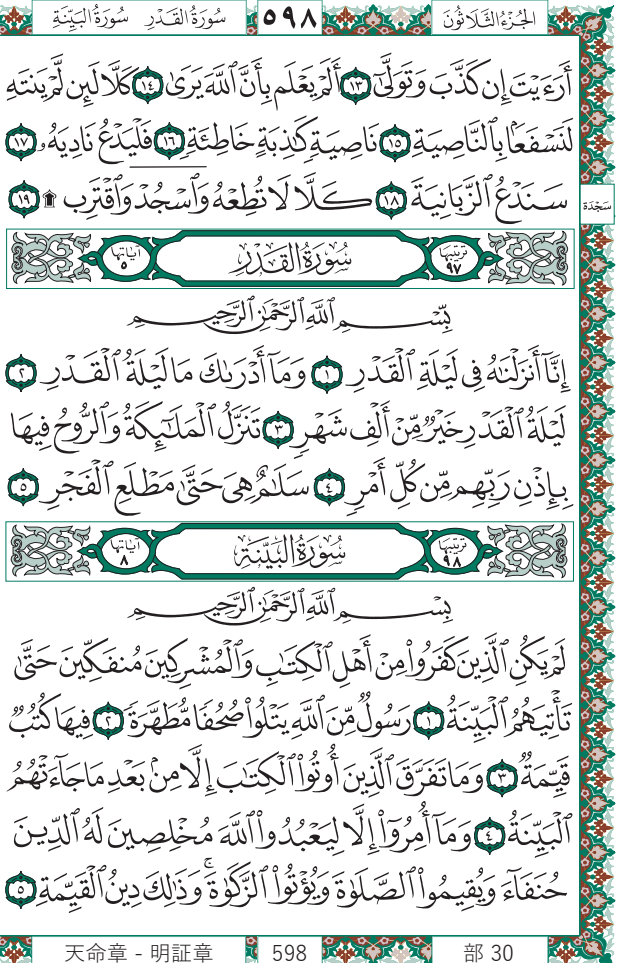 سُورَةُ القَدْرِ سُورَةُ البَيِّنَةِ ٥٩٨ الجُزْءُ الثَّلَاثُونَ
أَرَءَيْتَ إِن كَذَّبَ وَتَوَلَّىٰٓ ١٣ أَلَمْ يَعْلَم بِأَنَّ ٱللَّهَ يَرَىٰ ١٤ كَلَّا لَئِن لَّمْ يَنتَهِ
لَنَسْفَعًۢا بِٱلنَّاصِيَةِ ١٥ نَاصِيَةٍ كَٰذِبَةٍ خَاطِئَةٍ ١٦ فَلْيَدْعُ نَادِيَهُۥ ١٧
سَنَدْعُ ٱلزَّبَانِيَةَ ١٨ كَلَّا لَا تُطِعْهُ وَٱسْجُدْ وَٱقْتَرِب ۩ ١٩
سَجْدَة
تَرْتِيبُهَا ٩٧ سُورَةُ القَدْرِ آيَاتُهَا ٥
بِسْمِ ٱللَّهِ ٱلرَّحْمَٰنِ ٱلرَّحِيمِ
إِنَّآ أَنزَلْنَٰهُ فِى لَيْلَةِ ٱلْقَدْرِ ١ وَمَآ أَدْرَىٰكَ مَا لَيْلَةُ ٱلْقَدْرِ ٢
لَيْلَةُ ٱلْقَدْرِ خَيْرٌ مِّنْ أَلْفِ شَهْرٍ ٣ تَنَزَّلُ ٱلْمَلَٰٓئِكَةُ وَٱلرُّوحُ فِيهَا
بِإِذْنِ رَبِّهِم مِّن كُلِّ أَمْرٍ ٤ سَلَٰمٌ هِىَ حَتَّىٰ مَطْلَعِ ٱلْفَجْرِ ٥
تَرْتِيبُهَا ٩٨ سُورَةُ البَيِّنَةِ آيَاتُهَا ٨
بِسْمِ ٱللَّهِ ٱلرَّحْمَٰنِ ٱلرَّحِيمِ
لَمْ يَكُنِ ٱلَّذِينَ كَفَرُوا۟ مِنْ أَهْلِ ٱلْكِتَٰبِ وَٱلْمُشْرِكِينَ مُنفَكِّينَ حَتَّىٰ
تَأْتِيَهُمُ ٱلْبَيِّنَةُ ١ رَسُولٌ مِّنَ ٱللَّهِ يَتْلُوا۟ صُحُفًا مُّطَهَّرَةً ٢ فِيهَا كُتُبٌ
قَيِّمَةٌ ٣ وَمَا تَفَرَّقَ ٱلَّذِينَ أُوتُوا۟ ٱلْكِتَٰبَ إِلَّا مِنۢ بَعْدِ مَا جَآءَتْهُمُ
ٱلْبَيِّنَةُ ٤ وَمَآ أُمِرُوٓا۟ إِلَّا لِيَعْبُدُوا۟ ٱللَّهَ مُخْلِصِينَ لَهُ ٱلدِّينَ
حُنَفَآءَ وَيُقِيمُوا۟ ٱلصَّلَوٰةَ وَيُؤْتُوا۟ ٱلزَّكَوٰةَ ۚ وَذَٰلِكَ دِينُ ٱلْقَيِّمَةِ ٥
天命章 - 明証章 598 部 30